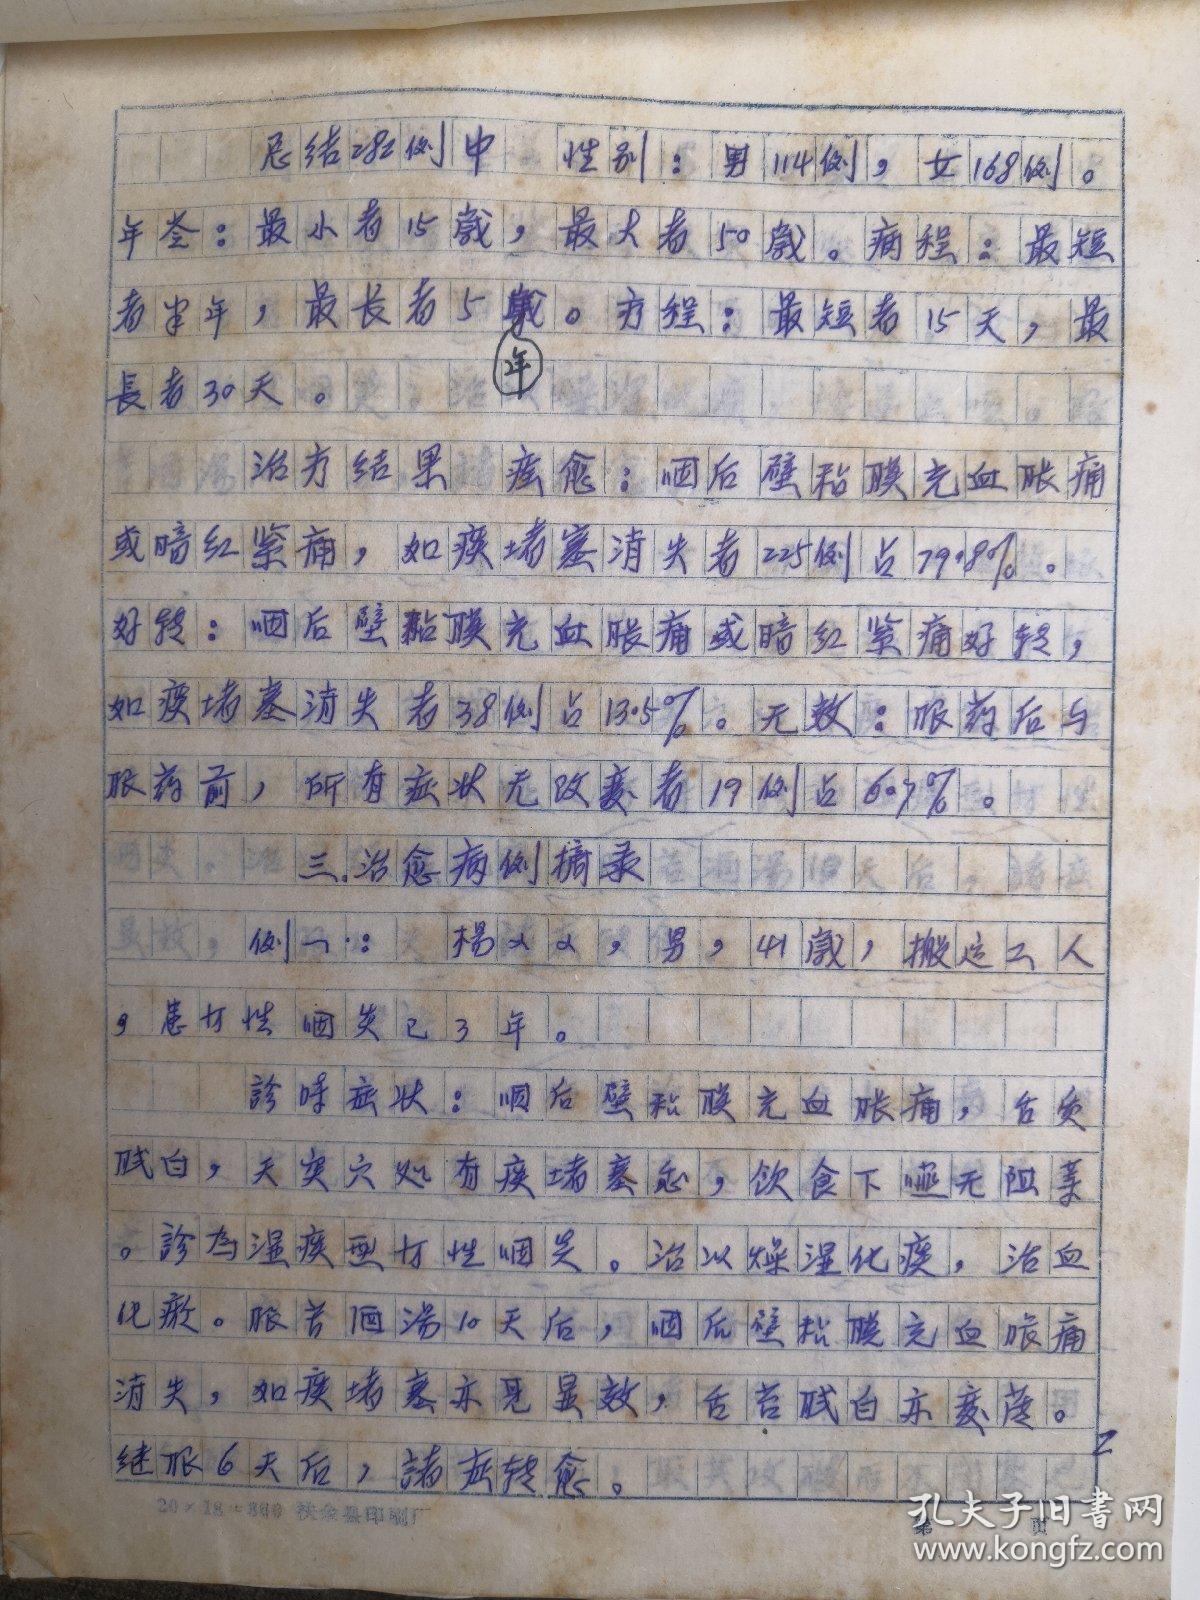 总结282例中 性别：男114例，女168例。
年令：最小者15岁，最大者50岁。病程：最短
者半年，最长者5岁。疗程：最短者15天，最
年
長者30天。
治疗结果 痊愈：咽后壁粘膜充血胀痛
或暗红紧痛，如痰堵塞消失者225例占79.8%。
好转：咽后壁粘膜充血胀痛或暗红紧痛好转，
如痰堵塞消失者38例占13.5%。无效：服药后与
服药前，所有症状无改变者19例占6.7%。
三.治愈病例摘录
例一：杨××，男，41岁，搬运工人
，患 性咽炎已3年。
診时症状：咽后壁粘膜充血胀痛，舌质
腻白，天突穴处有痰堵塞 ，饮食下咽无阻
。診为湿痰型 性咽炎。治以燥湿化痰，活血
化瘀。服 汤10天后，咽后壁粘膜充血胀痛
消失，如痰堵塞亦见显效，舌苔腻白亦变薄。
继服6天后，諸症转愈。
2
20×18=360 扶余县印刷厂
第 页
孔夫子旧书网
www.kongfz.com